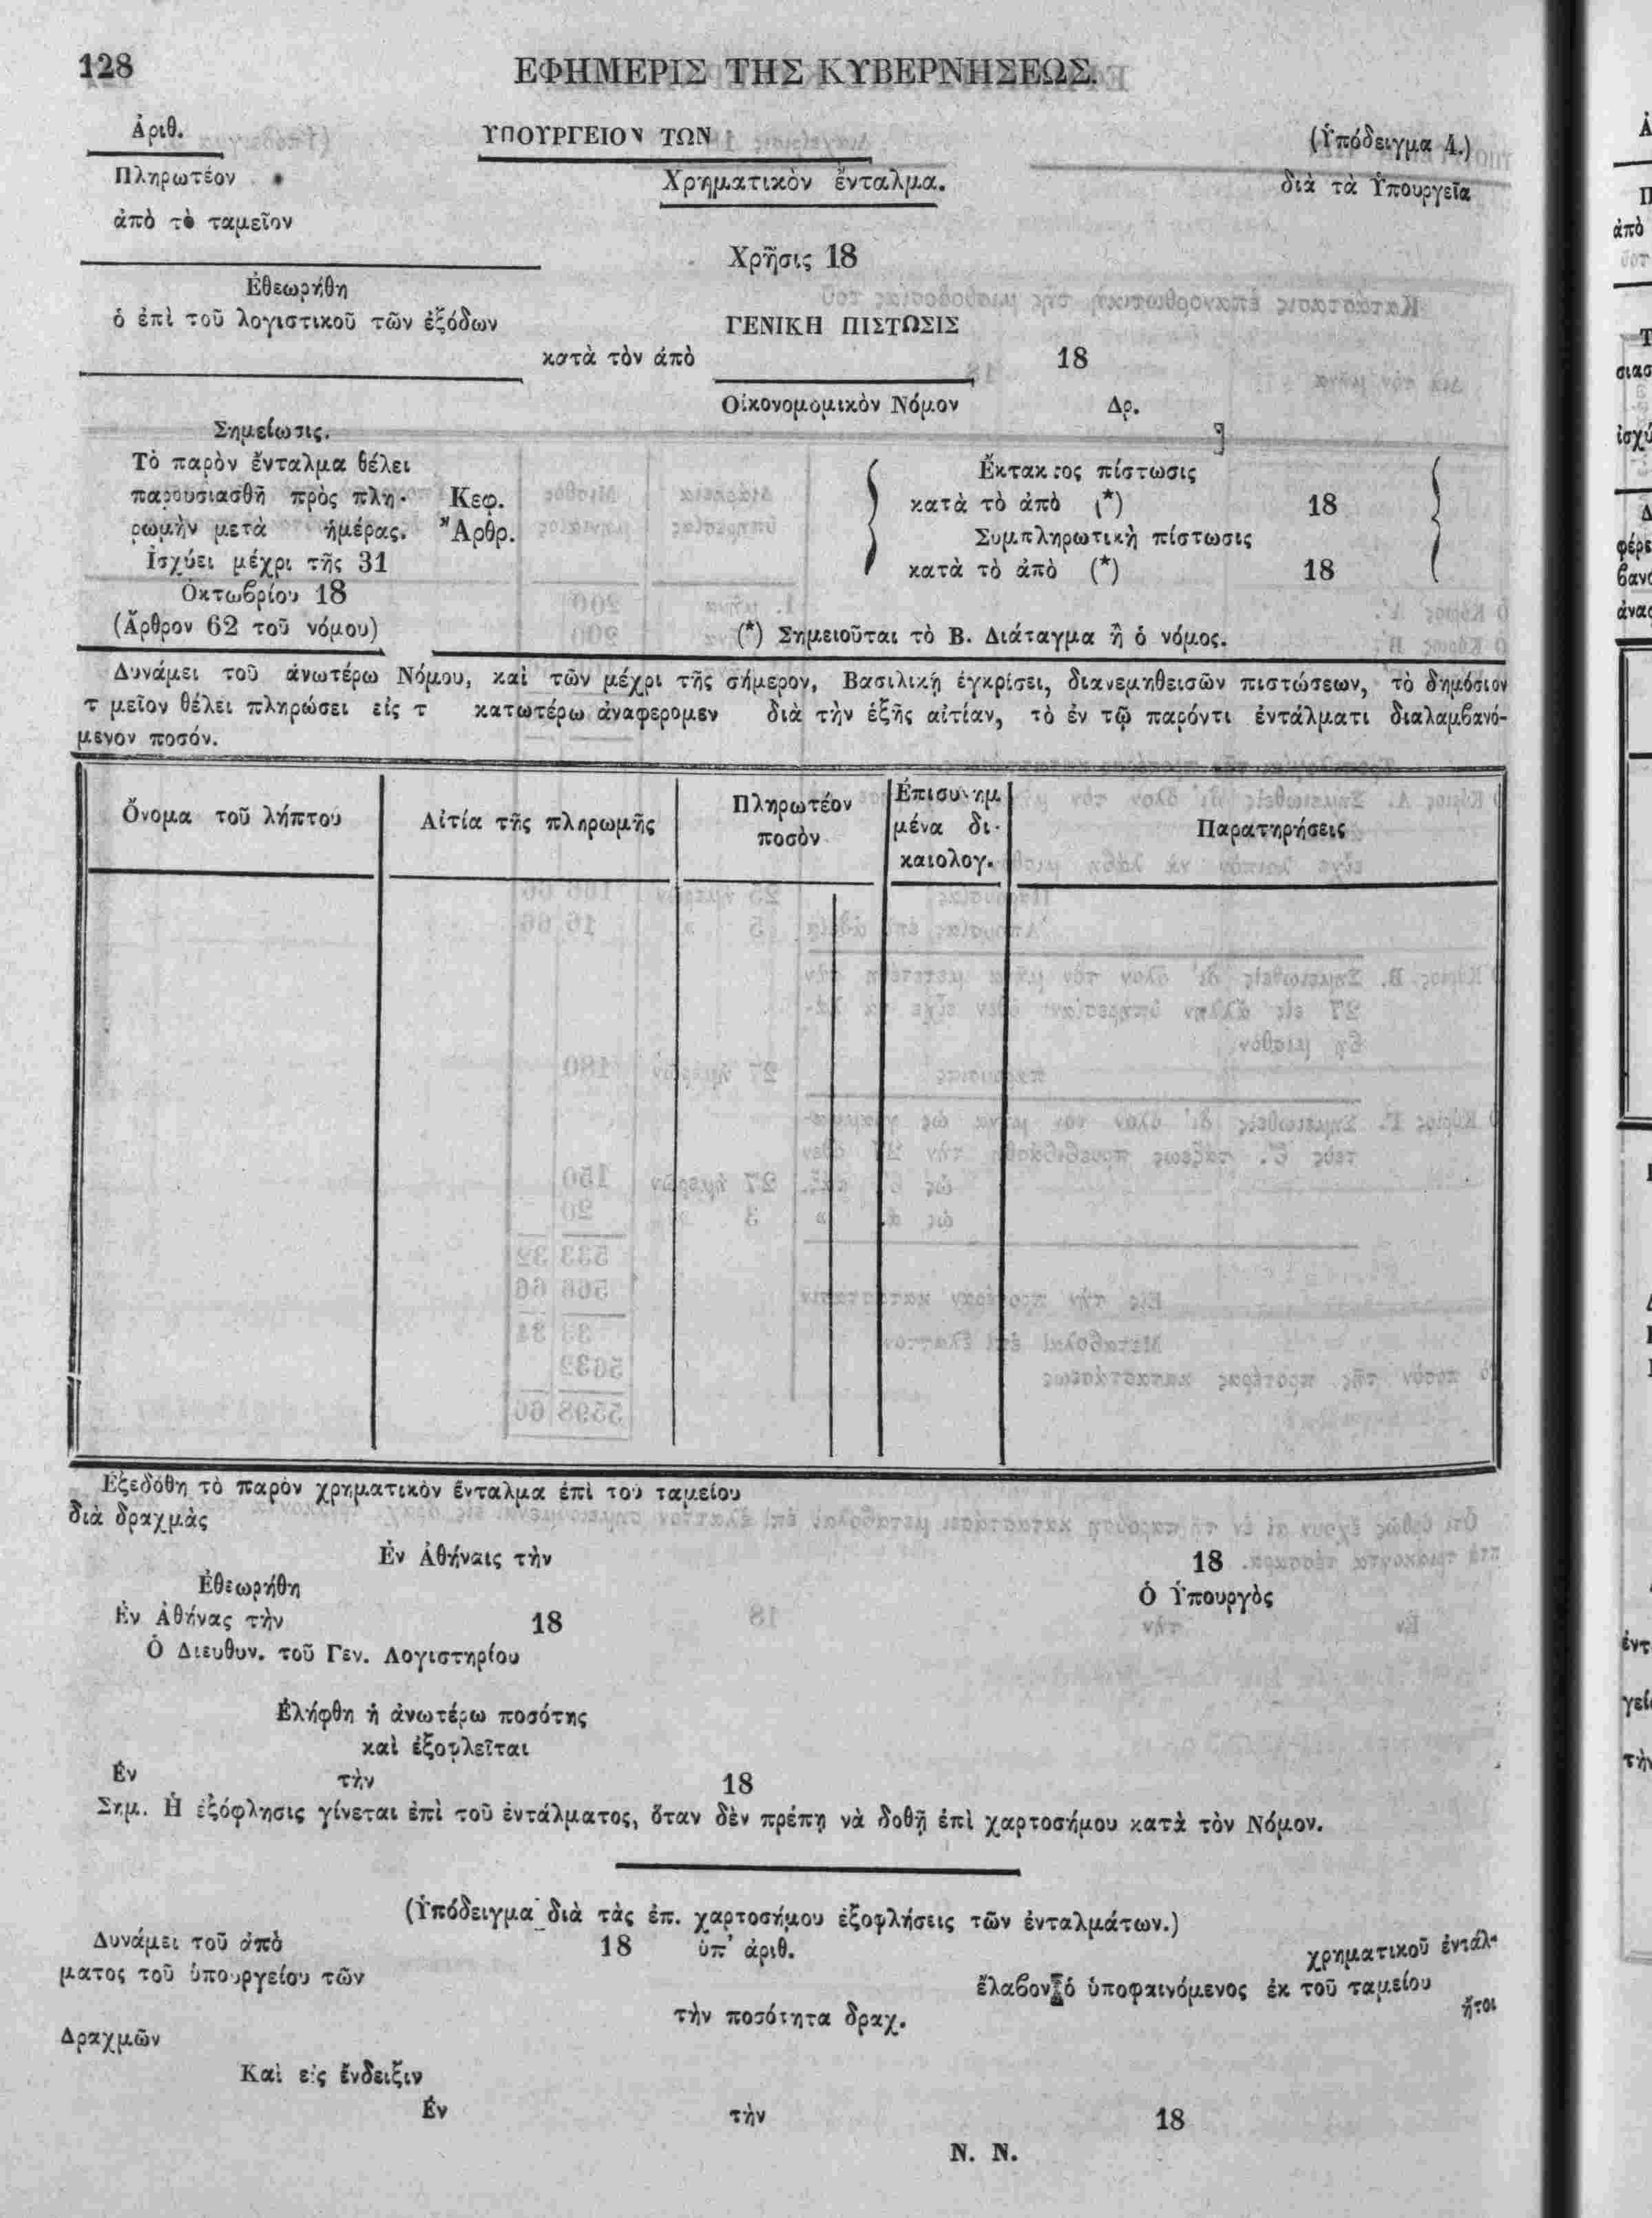 128
ΕΦΗΜΕΡΙΣ ΤΗΣ ΚΥΒΕΡΝΗΣΕΩΣ.
Ἀριθ.
ΥΠΟΥΡΓΕΙΟΝ ΤΩΝ
(Ὑπόδειγμα 4.)
Πληρωτέον
Χρηματικὸν ἔνταλμα.
διὰ τὰ Ὑπουργεῖα
ἀπὸ τὸ ταμεῖον
Χρῆσις 18
Ἐθεωρήθη
ὁ ἐπὶ τοῦ λογιστικοῦ τῶν ἐξόδων
ΓΕΝΙΚΗ ΠΙΣΤΩΣΙΣ
κατὰ τὸν ἀπὸ 18
Οἰκονομομικὸν Νόμον Δρ.
Σημείωσις.
Τὸ παρὸν ἔνταλμα θέλει
παρουσιασθῆ πρὸς πλη-
ρωμὴν μετὰ ἡμέρας.
Ἰσχύει μέχρι τῆς 31
Ὀκτωβρίου 18
(Ἄρθρον 62 τοῦ νόμου)
Κεφ.
Ἄρθρ.
Ἔκτακτος πίστωσις
κατὰ τὸ ἀπὸ (*) 18
Συμπληρωτικὴ πίστωσις
κατὰ τὸ ἀπὸ (*) 18
(*) Σημειοῦται τὸ Β. Διάταγμα ἢ ὁ νόμος.
Δυνάμει τοῦ ἀνωτέρω Νόμου, καὶ τῶν μέχρι τῆς σήμερον, Βασιλικῇ ἐγκρίσει, διανεμηθεισῶν πιστώσεων, τὸ δημόσιον
τ μεῖον θέλει πληρώσει εἰς τ κατωτέρω ἀναφερομεν διὰ τὴν ἑξῆς αἰτίαν, τὸ ἐν τῷ παρόντι ἐντάλματι διαλαμβανό-
μενον ποσόν.
Ὄνομα τοῦ λήπτου
Αἰτία τῆς πληρωμῆς
Πληρωτέον
ποσὸν
Ἐπισυνημ
μένα δι-
καιολογ.
Παρατηρήσεις
Ἐξεδόθη τὸ παρὸν χρηματικὸν ἔνταλμα ἐπὶ τοῦ ταμείου
διὰ δραχμὰς
Ἐν Ἀθήναις τὴν 18
Ἐθεωρήθη
Ὁ Ὑπουργὸς
Ἐν Ἀθήνας τὴν 18
Ὁ Διευθυν. τοῦ Γεν. Λογιστηρίου
Ἐλήφθη ἡ ἀνωτέρω ποσότης
καὶ ἐξοφλεῖται
Ἐν τὴν 18
Σημ. Ἡ ἐξόφλησις γίνεται ἐπὶ τοῦ ἐντάλματος, ὅταν δὲν πρέπῃ νὰ δοθῇ ἐπὶ χαρτοσήμου κατὰ τὸν Νόμον.
(Ὑπόδειγμα διὰ τὰς ἐπ. χαρτοσήμου ἐξοφλήσεις τῶν ἐνταλμάτων.)
Δυνάμει τοῦ ἀπὸ 18 ὑπ' ἀριθ. χρηματικοῦ ἐντάλ-
ματος τοῦ ὑπουργείου τῶν
ἔλαβον ὁ ὑποφαινόμενος ἐκ τοῦ ταμείου
τὴν ποσότητα δραχ. ἤτοι
Δραχμῶν
Καὶ εἰς ἔνδειξιν
Ἐν τὴν 18
Ν. Ν.